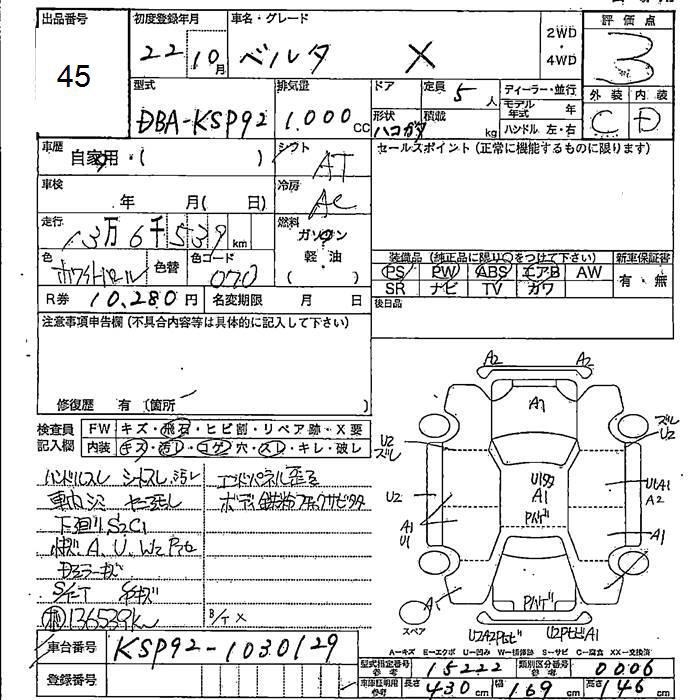 出品番号
45
初度登録年月
22 10月
車名・グレード
ベルタ X
2WD
・
4WD
評価点
3
外装 内装
C D
型式
DBA-KSP92
排気量
1.000 CC
ドア
定員
5人
形状
ハコガタ
積載
kg
ディーラー・並行
モデル年式 年
ハンドル 左・右
車歴
自家用・( )
シフト
AT
車検
年 月( 日)
冷房
AC
走行
13万6千539km
燃料
ガソリン
軽・油
( )
色
ホワイトパール
色替
色コード
070
R券 10,280円
名変期限 月 日
セールスポイント(正常に機能するものに限ります)
装備品(純正品に限り○をつけて下さい)
PS PW ABS エアB AW
SR ナビ TV カワ
新車保証書
有・無
後日品
注意事項申告欄(不具合内容等は具体的に記入して下さい)
修復歴 有(箇所
検査員記入欄
FW キズ・飛石・ヒビ割・リペア跡・X要
内装 キズ・汚レ・コゲ・穴・スレ・キレ・破レ
ハンドルスレ シートスレ、汚レ
車内シミ
下廻りS2C1
A、U、W2
136539km
車台番号
KSP92-1030129
登録番号
A2 A2
A1
U2
ズレ
ズレ
U2
U2
A1
U1
A1
U1A1
A2
A1
A1
スペア
A-キズ E-エクボ U-凹み W-補修跡 S-サビ C-腐食 XX-交換済
型式指定番号
参考
15222
類別区分番号
参考
0006
車庫証明用
参考
長さ 430cm 幅 169cm 高さ 146cm